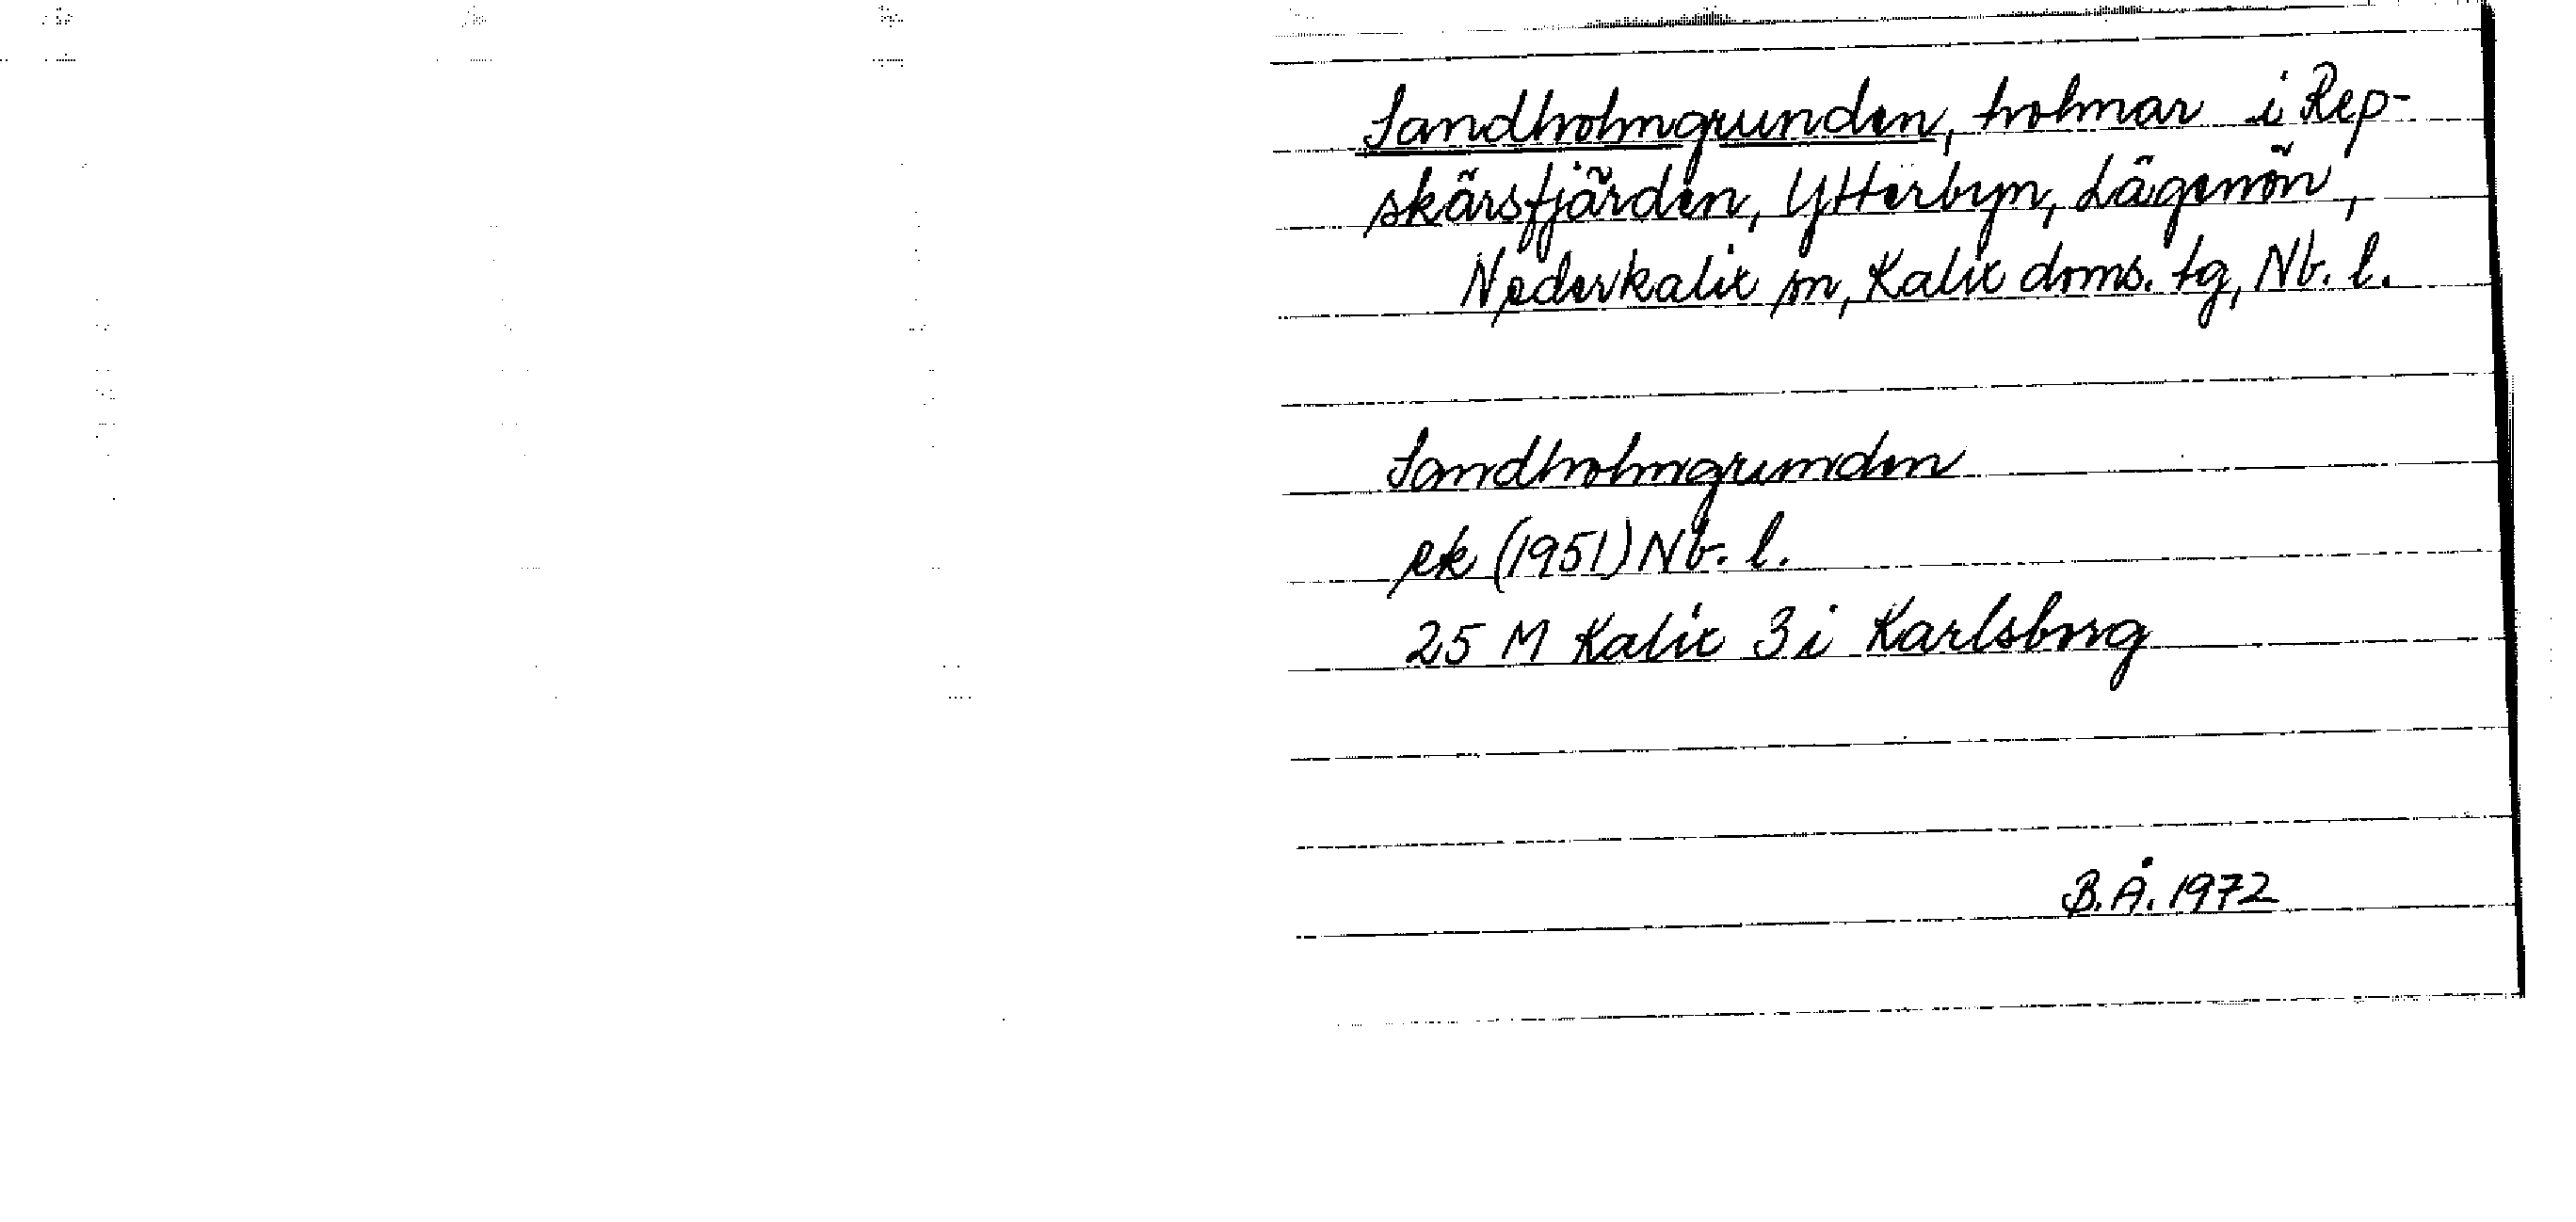 Sandholmgrunden, holmar i Rep-
skärsfjärden, Ytterbyn, Lägenön,
Nederkalix sn, Kalix doms. tg, Nb. l.
Sandholmgrunden
ek (1951) Nb. l.
25 M Kalix 3 i Karlsborg
B.Å. 1972